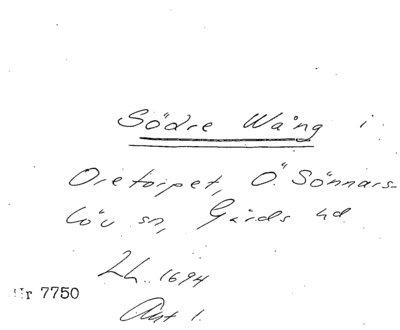 Södre Wång i
Oretorpet, Ö. Sönnars-
löv sn, Gärds hd
LL. 1694
Nr 7750
Akt 1.